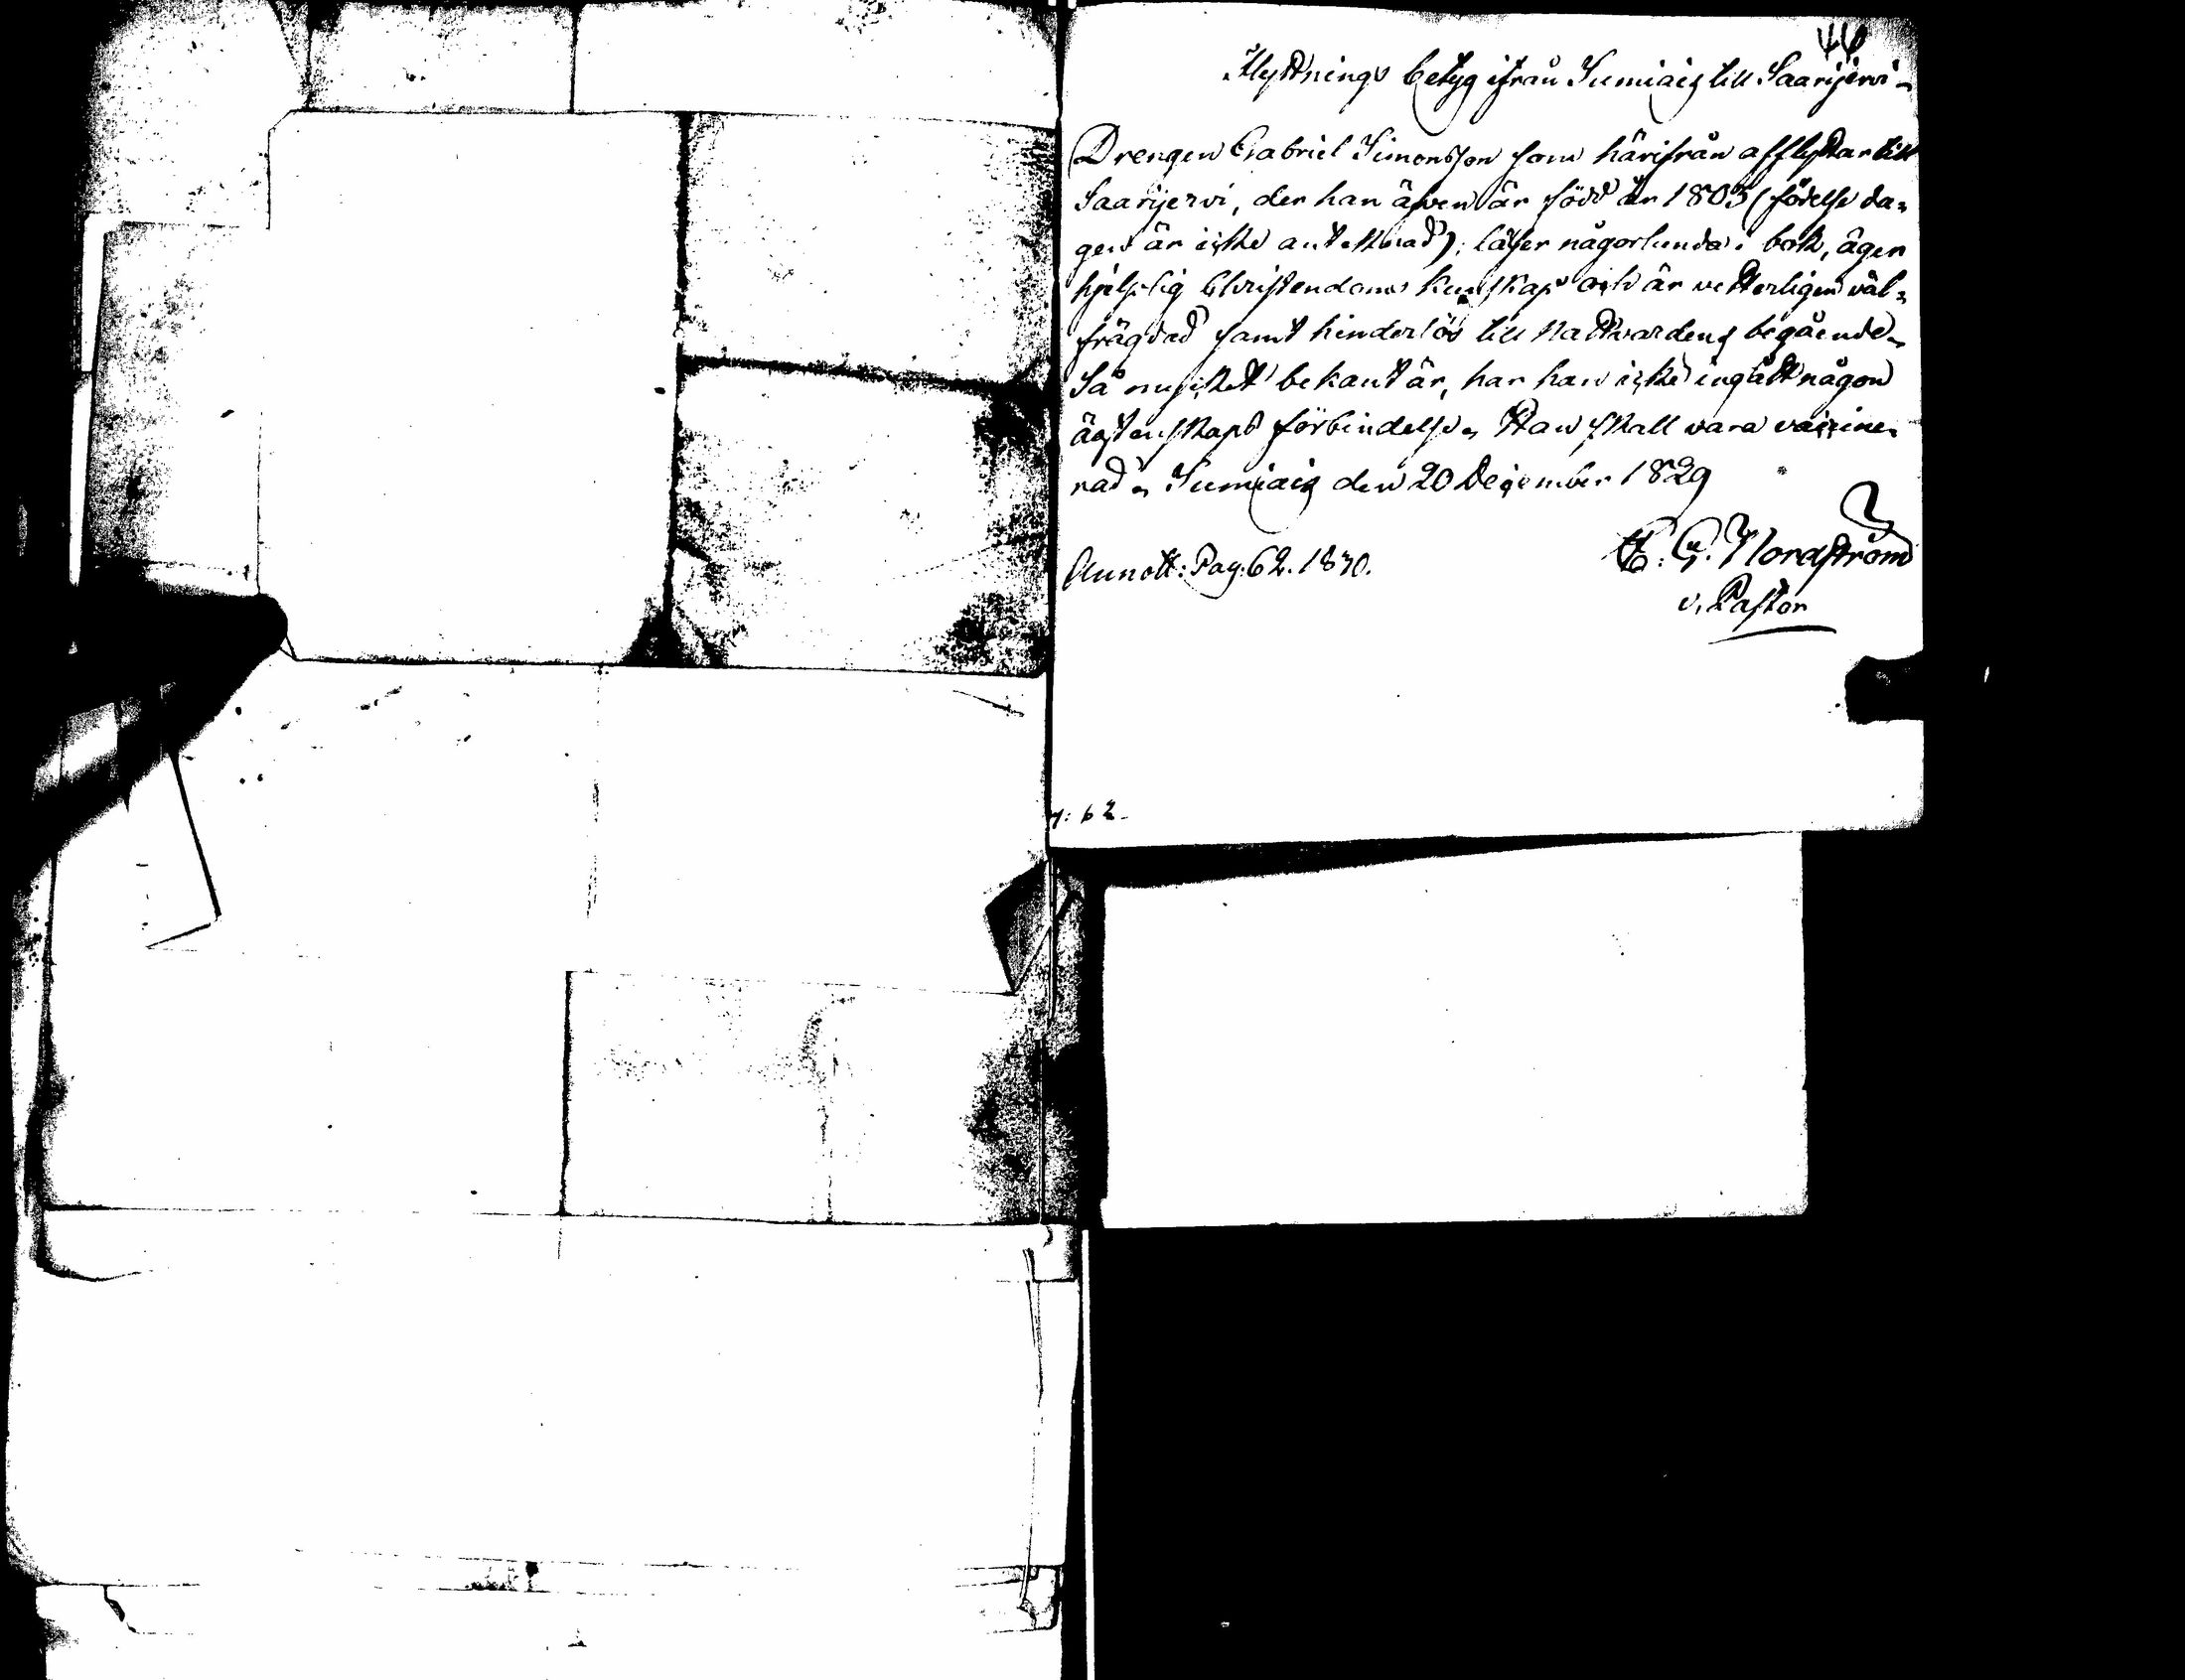 46
Flyttnings betyg ifrån Sumiais till Saarijervi-
Drengen Gabriel Simonsson som härifrån afflyttar till
Saarijervi, der han äfven är född år 1803 (födelse da-
gen är icke antecknad); läser någorlunda i bok, äger
hjelplig Christendoms kunskap och är vetterligen väl-
frägdad samt hinderlös till Nattvardens begående.
Så mycket bekant är, har han icke ingått någon
ägtenskaps förbindelse. Han skall vara vaccine-
rad. Sumiais den 20 December 1829
C. G. Nordström
v. Pastor
Annott: Pag: 62. 1830.
: 62-